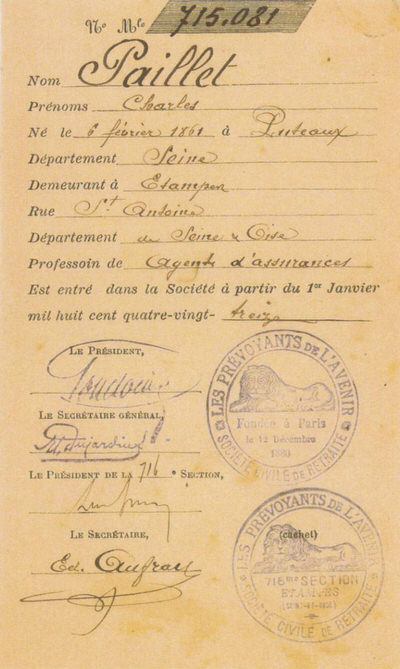 Nº Mle 715.081
Nom Paillet
Prénoms Charles
Né le 6 février 1861 à Puteaux
Département Seine
Demeurant à Etampes
Rue St Antoine
Département de Seine & Oise
Professoin de Agent d'assurances
Est entré dans la Société à partir du 1er Janvier
mil huit cent quatre-vingt- treize
LE PRÉSIDENT,
LE SECRÉTAIRE GÉNÉRAL,
LES PRÉVOYANTS DE L'AVENIR
Fondée à Paris
le 12 Décembre
1880
SOCIÉTÉ CIVILE DE RETRAITE
M. Dujardin
LE PRÉSIDENT DE LA 716e SECTION,
LE SECRÉTAIRE,
(cachet)
Ed. Aufray
LES PRÉVOYANTS DE L'AVENIR
716me SECTION
ETAMPES
SOCIÉTÉ CIVILE DE RETRAITE